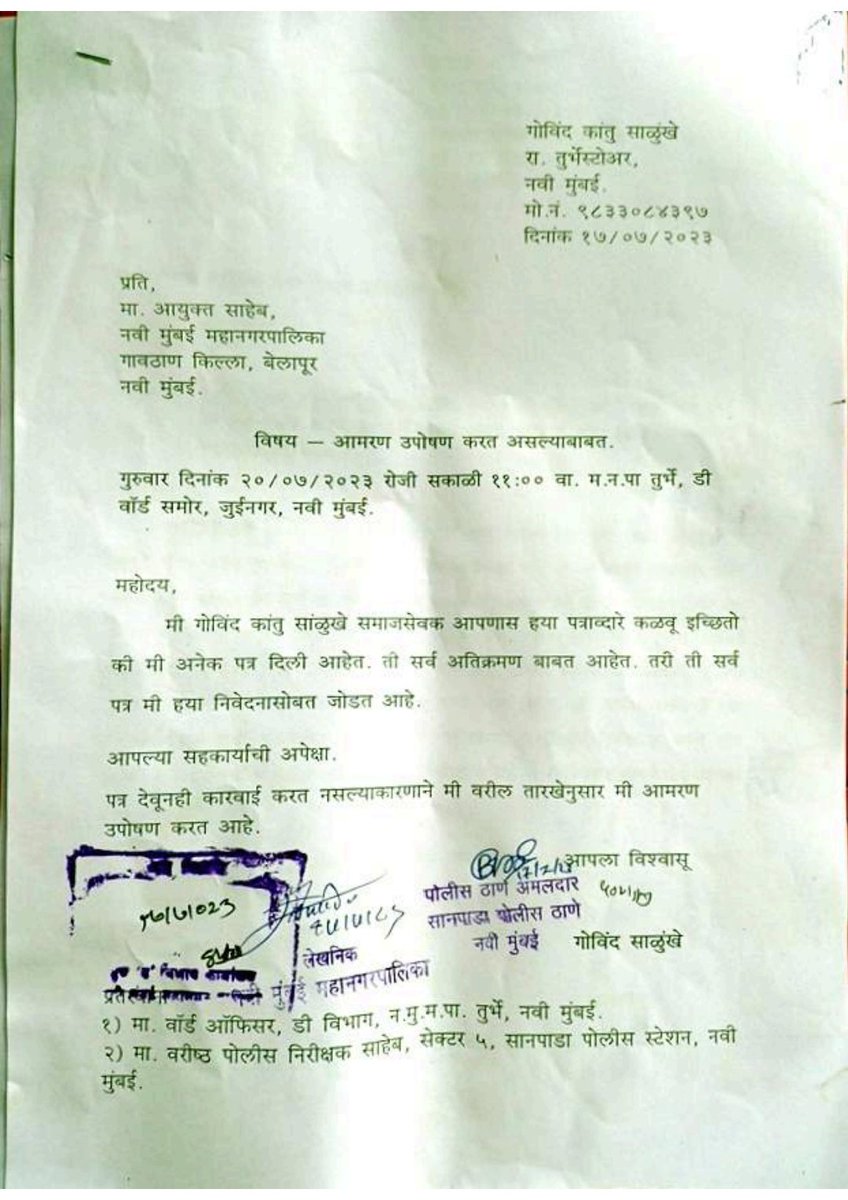 गोविंद कांतु साळुंखे
रा. तुर्भेस्टोअर,
नवी मुंबई.
मो.नं. ९८३३०८४३९७
दिनांक १७/०७/२०२३
प्रति,
मा. आयुक्त साहेब,
नवी मुंबई महानगरपालिका
गावठाण किल्ला, बेलापूर
नवी मुंबई.
विषय – आमरण उपोषण करत असल्याबाबत.
गुरुवार दिनांक २०/०७/२०२३ रोजी सकाळी ११:०० वा. म.न.पा तुर्भे, डी
वॉर्ड समोर, जुईनगर, नवी मुंबई.
महोदय,
मी गोविंद कांतु सांळुखे समाजसेवक आपणास हया पत्राव्दारे कळवू इच्छितो
की मी अनेक पत्र दिली आहेत. ती सर्व अतिक्रमण बाबत आहेत. तरी ती सर्व
पत्र मी हया निवेदनासोबत जोडत आहे.
आपल्या सहकार्याची अपेक्षा.
पत्र देवूनही कारवाई करत नसल्याकारणाने मी वरील तारखेनुसार मी आमरण
उपोषण करत आहे.
आपला विश्वासू
पोलीस ठाणे अंमलदार
सानपाडा पोलीस ठाणे
नवी मुंबई गोविंद साळुंखे
लेखनिक
नवी मुंबई महानगरपालिका
१) मा. वॉर्ड ऑफिसर, डी विभाग, न.मु.म.पा. तुर्भे, नवी मुंबई.
२) मा. वरीष्ठ पोलीस निरीक्षक साहेब, सेक्टर ५, सानपाडा पोलीस स्टेशन, नवी
मुंबई.